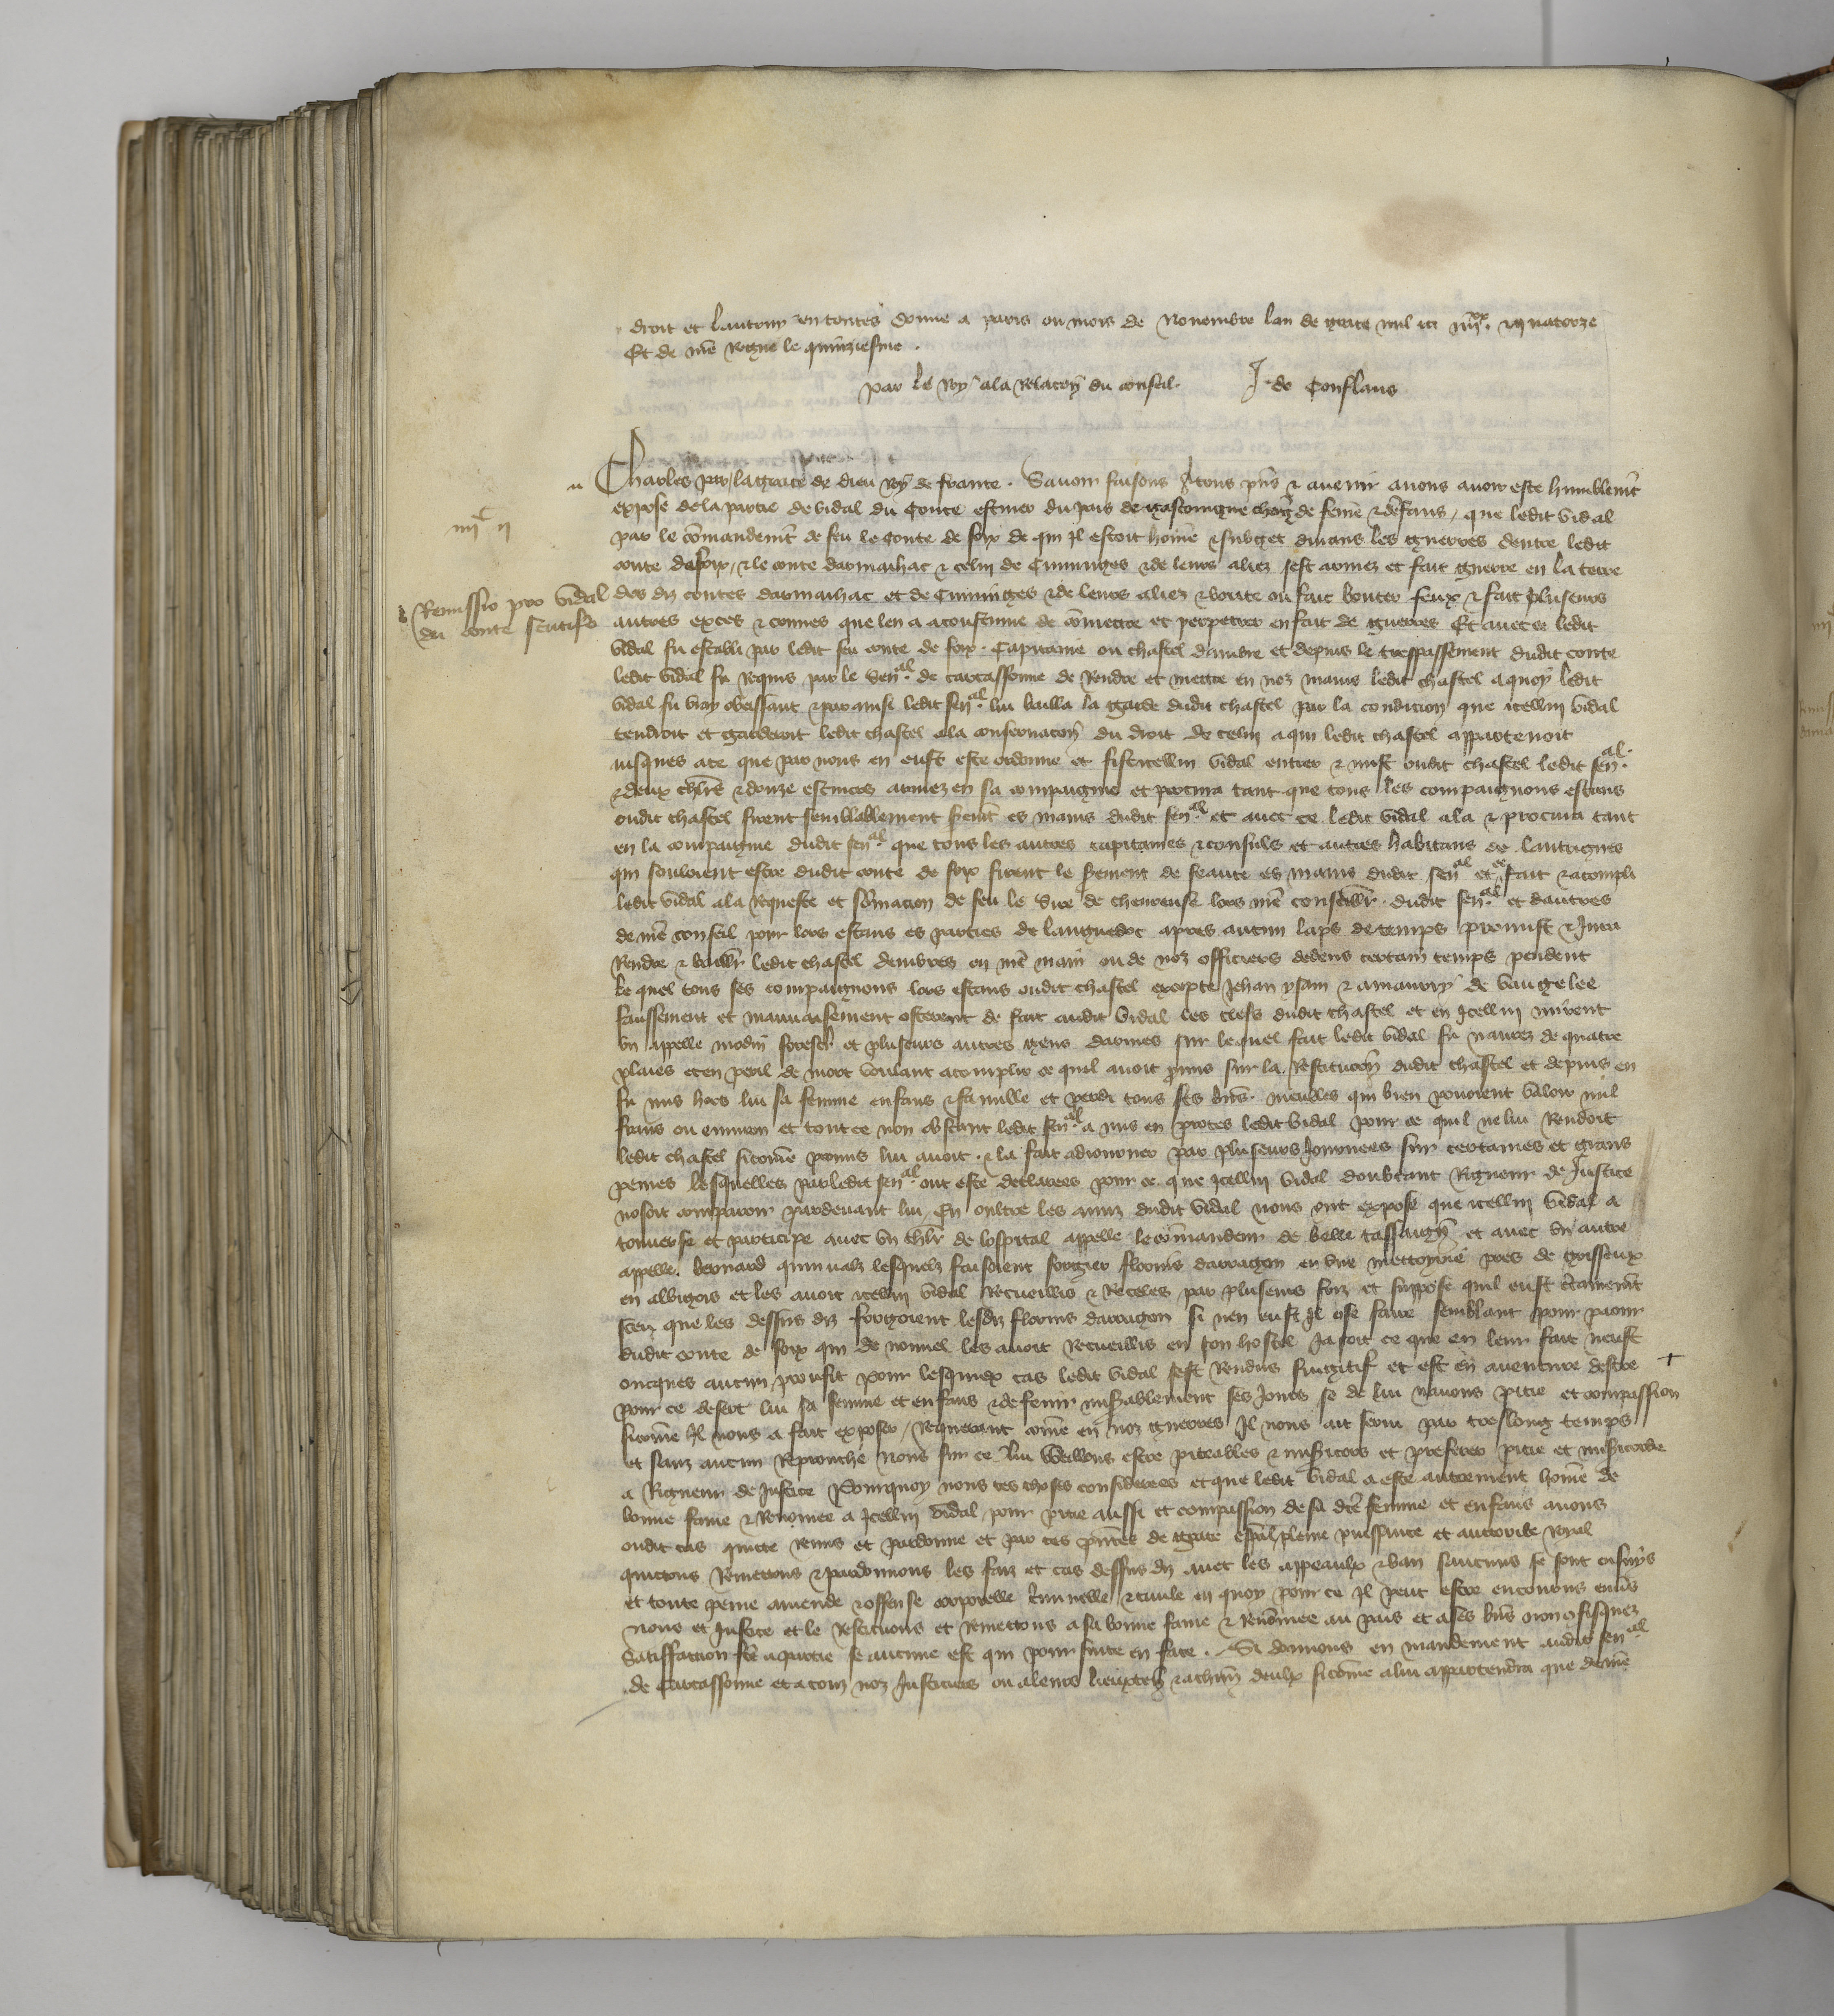 droit et lautruy en toutes Donne a paris ou mois de Novembre lan de grace mil ccc iiiixx. et quatorze
Et de nrē regne le quinziesme.
par le Roy a la relacōn du conseil. J. de Conflans
Charles par la grace de dieu roy de france. Savoir faisons a tous pn̄s & avenir avons avoir este humblemēt
iiiic ii
expose de la partie de vidal du Conte escuier du pais de gascoingne charg de feme & denfans, que ledit vidal
par le cōmandemēt de feu le Conte de foix de qui il estoit hōme & subget durans les guerres dentre ledit
conte de foix, & le conte darmaihac & celui de Cuminges & de leurs aliez sest armez et fait guerre en la terre
Remissio pro vidal du conte scutifo
des diz contes darmaihac et de Cuminges & de leurs aliez & boute ou fait bouter feux & fait pluseurs
autres exces & crimes que len a acoustume de cōmettre et perpetrer en fait de guerres Et avec ce ledit
vidal fu establi par ledit feu conte de foix. Capitaine ou chastel dambre et depuis le trespassement dudit conte
ledit vidal fu requis par le senal. de carcassonne de rendre et mettre en noz mains ledit chastel a quoy ledit
vidal fu vray obeissant & par ainsi ledit senal. lui bailla la garde dudit chastel par la condicion que icellui vidal
tendroit et garderoit ledit chastel a la conservacōn du droit de celui a qui ledit chastel appartenoit
jusques a ce que par nous en eust este ordonne et fist icellui vidal entrer & mist oudit chastel ledit senal.
& deux chlr̄s & douze escuiers armez en sa compaignie et procura tant que tous les compaignons estans
oudit chastel firent semblablement serēmt es mains dudit senal. et avec ce ledit vidal ala & procura tant
en la compaignie dudit senal. que tous les autres capitaines & consuls et autres habitans de lautrignes
qui souloient estre dudit conte de foix firent le serement de feaute es mains dudit senal et ce fait & acompli
ledit vidal a la requeste et sōmacion de feu le sire de chevreuse lors nrē conseillr. dudit senal. et dautres
de nrē conseil pour lors estans es parties de languedoc apres aucun laps de temps promist & jura
rendre & baillr ledit chastel dambres en nrē main ou de noz officiers dedens certain temps pendent
le quel tous ses compaignons lors estans oudit chastel excepte Jehan ysarn & amaury de vaugelee
faussement et mauvaisement osterent de fait audit vidal les clefs dudit chastel et en icellui mirent
un appelle modin foresei et pluseurs autres gens darmes sur lequel fait ledit vidal fu navrez de quatre
plaies et en peril de mort voulant acomplir ce quil avoit pmis sur la restitucōn dudit chastel et depuis en
fu mis hors lui sa femme enfans & famille et perdi tous ses biēs. meubles qui bien povoient valoir mil
frans ou environ et tout ce non obstant ledit senal. a mis en proces ledit vidal pour ce quil ne lui rendoit
ledit chastel sicōme promis lui avoit. & la fait adjourner par pluseurs journees sur certaines et grans
peines lesquelles par ledit senal. ont este declarees pour ce que icellui vidal doubtant rigueur de justice
nosoit comparoir pardevant lui En oultre les amis dudit vidal nous ont expose que icellui vidal a
converse et participe avec un chlr̄ de lospital appelle le cōmandeur de belle cassaigne et avec un autre
appelle. bernard quinvalz lesquelz faisoient forgier florins darragon en une mettoyrie pres de groisseux
en albigois et les avoit icellui vidal recueillis & receles par pluseurs foiz et suppose quil eust cētainemēt
sceu que les dessus diz forgoient lesdiz florins darragon si nen eust il ose faire semblant pour paour
dudit conte de foix qui de nouvel les avoit recueillis en son hostel ja soit ce que en leur fait neust
oncques aucun proufit pour lesquiex cas ledit vidal sest rendus fuigitif et est en aventure destre
pour ce desert lui sa femme et enfans & de fenir miserablement ses jours se de lui navons pitie et compassion
sicōme il nous a fait exposer, requerant cōme en noz guerres il nous ait servi par tres long temps
et sanz aucun reprouche nous sur ce lui vueillons estre piteables & misericors et preferer pitie et misericorde
a rigueur de justice Pourquoy nous ces choses considerees et que ledit vidal a este autrement hōme de
bonne fame & renomee a icellui vidal, pour pitie aussi et compassion de sa dicte femme et enfans avons
oudit cas quicte remis et pardonne et par ces pn̄tes de grace esp̄al, pleine puissance et auctorite royal
quictons remettons & pardonnons les faiz et cas dessus diz avec les appeaulx & ban saucuns se sont ensuys
et toute peine amende & offense corporelle crīminelle & civile en quoy pour ce il peut estre encouruz envs̄
nous et justice et le restituons et remettons a sa bonne fame & renōmee au pais et a ses biēs non cōfisquez
Satiffacion fcē a partie se aucune est qui pour suite en face. Si donnons en mandement audit senal
de Carcassonne et a touz noz justiciers ou a leurs lieuxten̄ & a chūn deulx sicōme a lui appartendra que de nrē